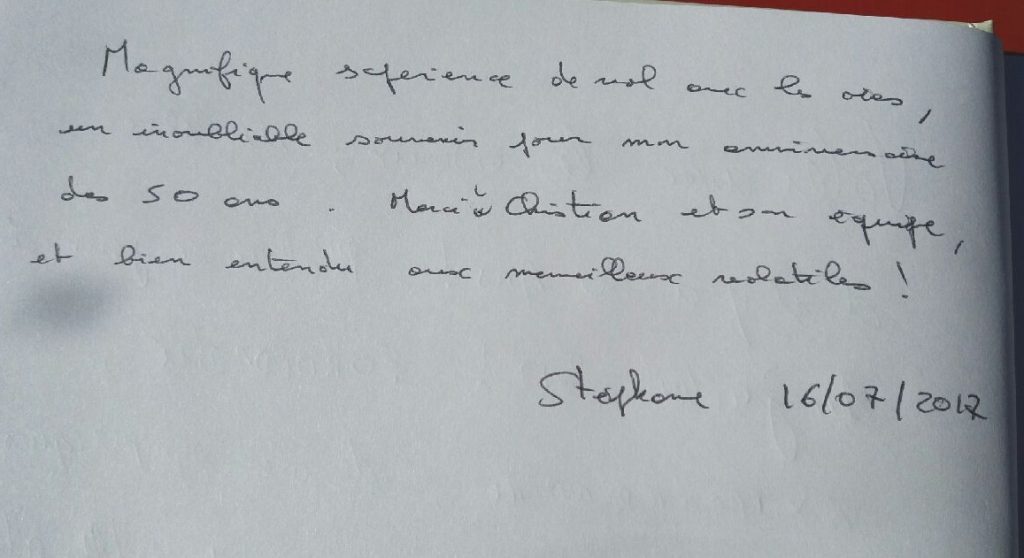 Magnifique experience de vol avec les oies,
un inoubliable souvenir pour mon anniversaire
des 50 ans. Merci à Christian et son équipe,
et bien entendu aux merveilleux volatiles !
Stéphane 16/07/2017